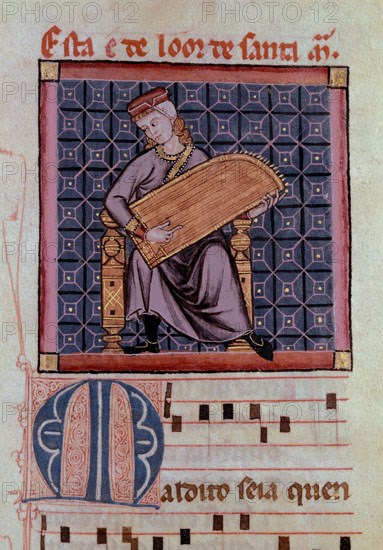 Esta e de loor de santa M̃.
Maldito seia quen